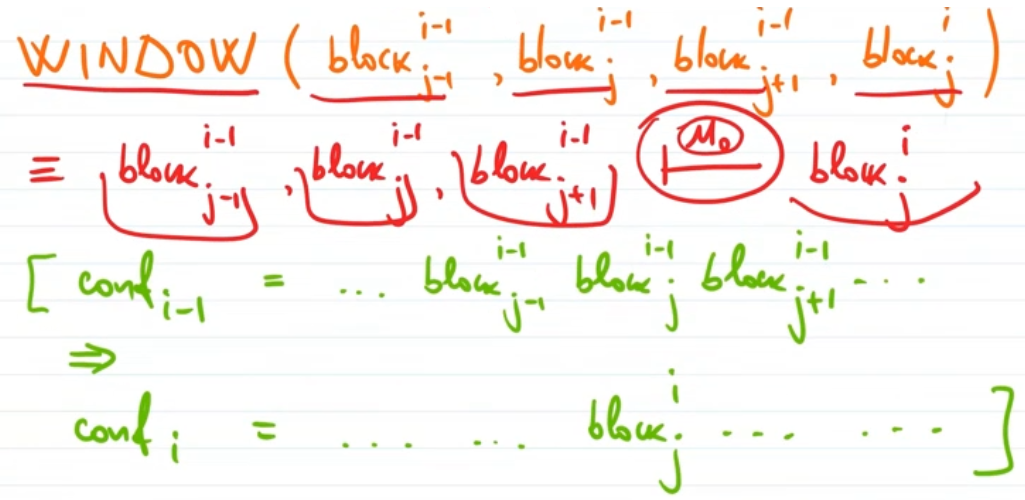 WINDOW ( block_{j-1}^{i-1} , block_j^{i-1} , block_{j+1}^{i-1} , block_j^i )
≡ block_{j-1}^{i-1} , block_j^{i-1} , block_{j+1}^{i-1} ⊢^{M_0} block_j^i
[ conf_{i-1} = ... block_{j-1}^{i-1} block_j^{i-1} block_{j+1}^{i-1} ...
⇒
conf_i = ... ... block_j^i ... ... ]